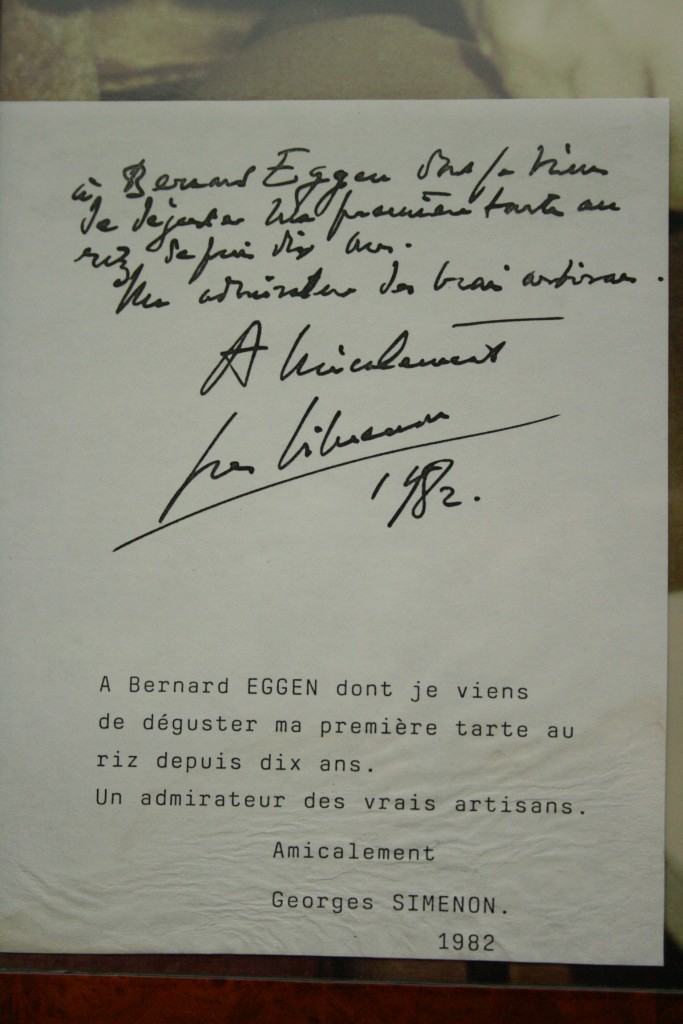 à Bernard Eggen dont je viens
de déguster ma première tarte au
riz depuis dix ans.
Un admirateur des vrais artisans.
Amicalement
Georges Simenon
1982.
A Bernard EGGEN dont je viens
de déguster ma première tarte au
riz depuis dix ans.
Un admirateur des vrais artisans.
Amicalement
Georges SIMENON.
1982